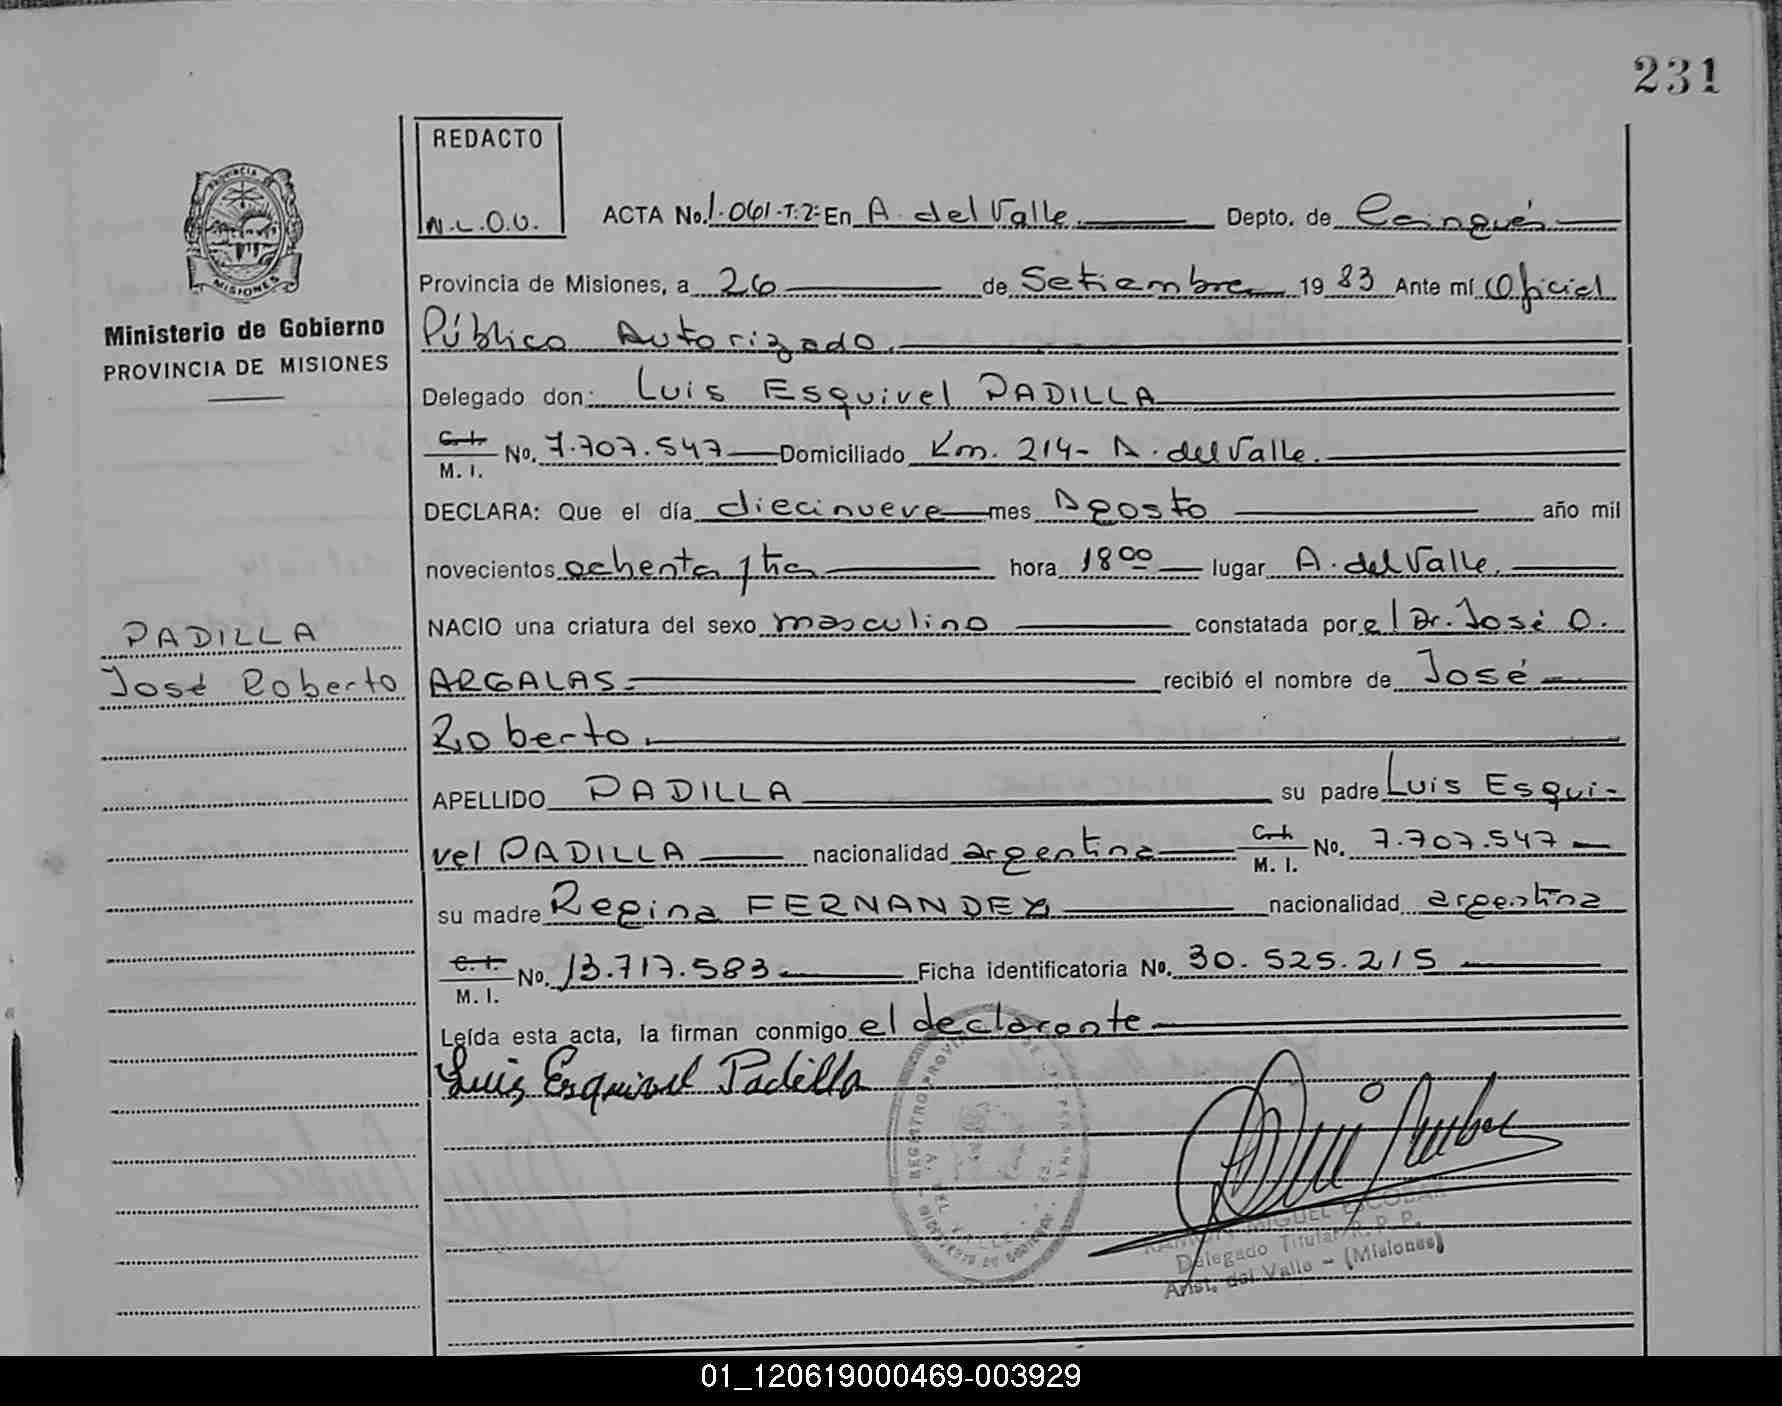 231
REDACTO
N.L.O.V.
PROVINCIA
MISIONES
Ministerio de Gobierno
PROVINCIA DE MISIONES
ACTA No. 1.061-T:2: En A. del Valle. Depto. de Cainguás
Provincia de Misiones, a 26 de Setiembre 1983 Ante mí Oficial
Público Autorizado.
Delegado don: Luis Esquivel PADILLA
C. I.
M. I. No. 7.707.547 Domiciliado Km. 214- A. del Valle.
DECLARA: Que el día diecinueve mes Agosto año mil
novecientos ochenta y tres hora 18 00 lugar A. del Valle.
NACIO una criatura del sexo masculino constatada por el Dr. José O.
PADILLA
José Roberto
ARGALAS. recibió el nombre de José
Roberto.
APELLIDO PADILLA su padre Luis Esqui-
vel PADILLA nacionalidad argentina C. I. M. I. No. 7.707.547
su madre Regina FERNANDEZ nacionalidad argentina
C. I.
M. I. No. 13.717.583 Ficha identificatoria No. 30.525.215
Leída esta acta, la firman conmigo el declarante
Luis Esquivel Padilla
RAMON MIGUEL ESCOBAR
Delegado Titular R. P. P.
Arist. del Valle - (Misiones)
01_120619000469-003929